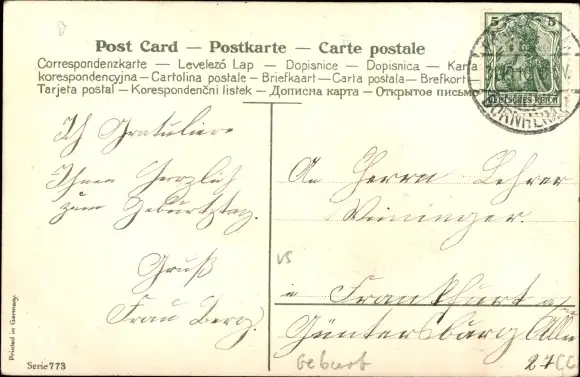 Post Card — Postkarte — Carte postale
Correspondenzkarte — Levelező Lap — Dopisnice — Dopisnica — Karta
korespondencyjna — Cartolina postale — Briefkaart — Carta postala — Brefkort
Tarjeta postal — Korespondenční listek — Дописна карта — Открытое письмо
5 5
DEUTSCHES REICH
BORNHEIM
Ich Gratuliere
Ihnen Herzlich
zum Geburtstag.
Gruß
Frau Berg.
An Herrn Lehrer
Weininger.
Frankfurt a/
Güntersburg Allee
27
Geburt
Printed in Germany.
Serie 773